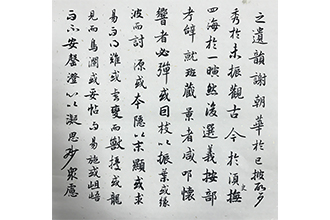 之遺韻謝朝華於已披啟夕
秀於未振觀古今於須臾撫
四海於一瞬然後選義按部
考辭就班藏景者咸叩懷
響者必彈或因枝以振葉或緣
波而討源或本隱以末顯或求
易而得難或虎變而獸擾或龍
見而鳥瀾或妥帖而易施或岨峿
而不安罄澄心以凝思眇衆慮